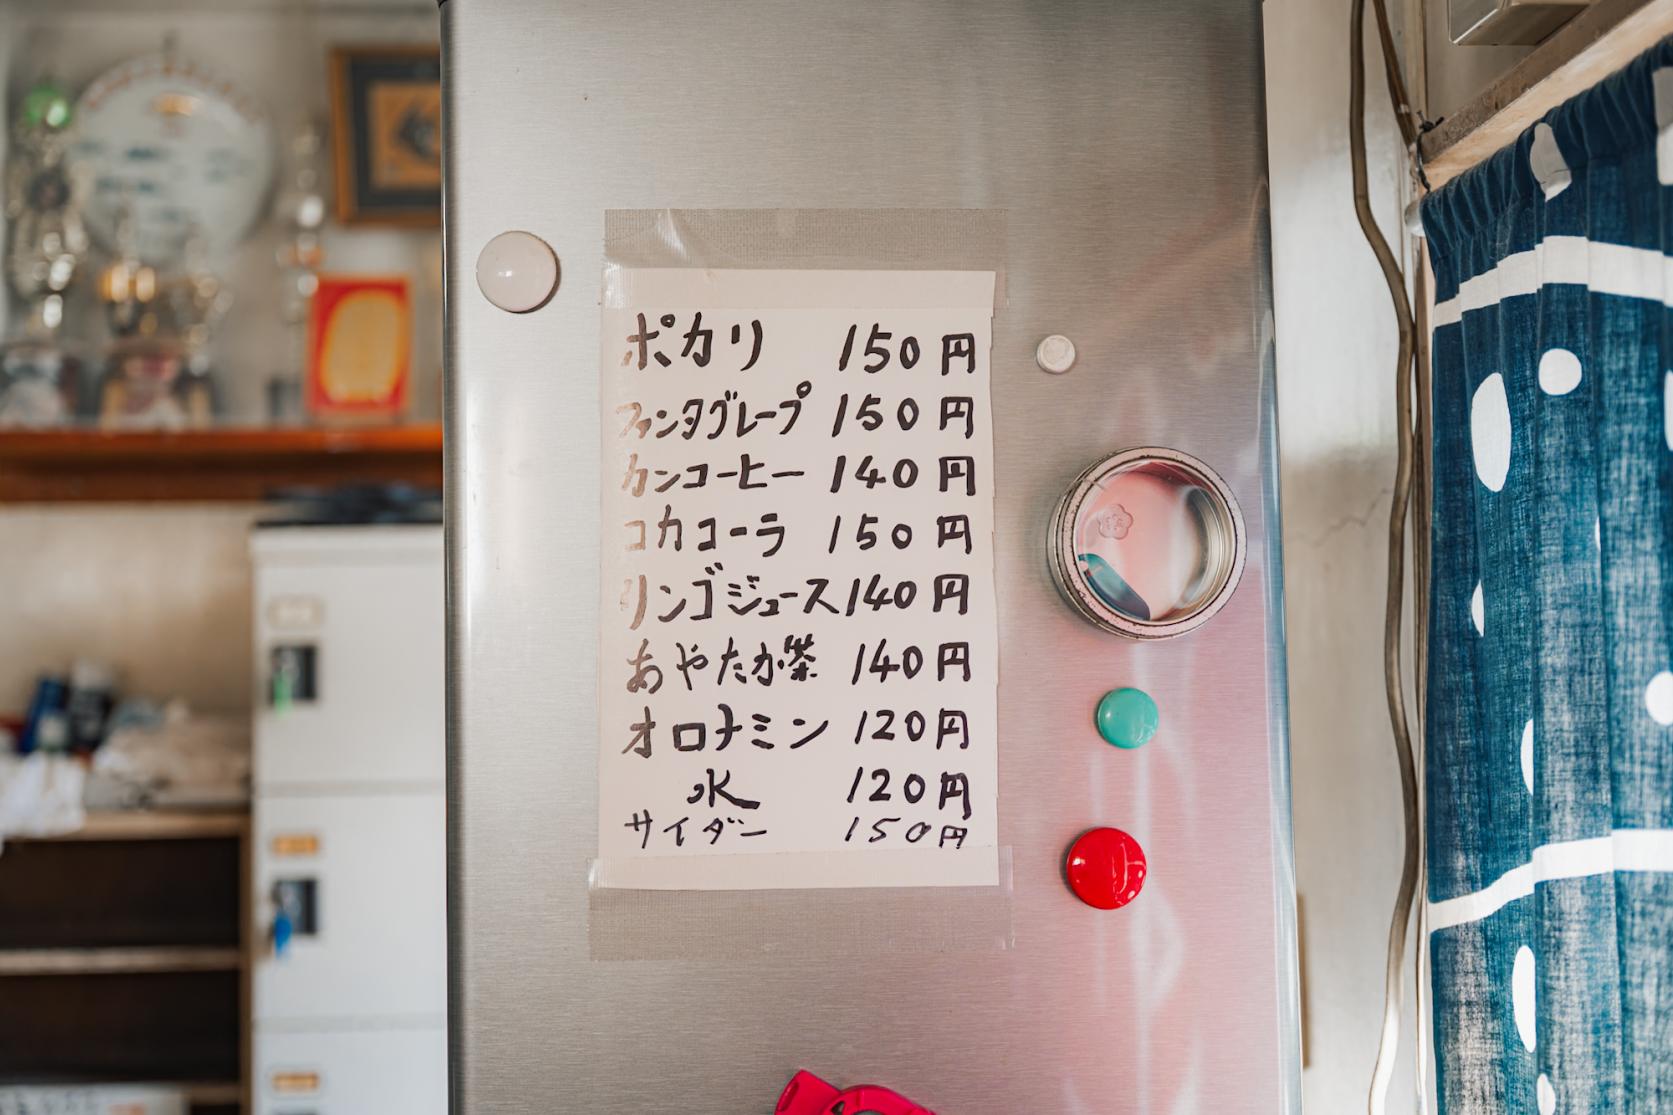 ポカリ 150円
ファンタグレープ 150円
カンコーヒー 140円
コカコーラ 150円
リンゴジュース 140円
あやたか茶 140円
オロナミン 120円
水 120円
サイダー 150円